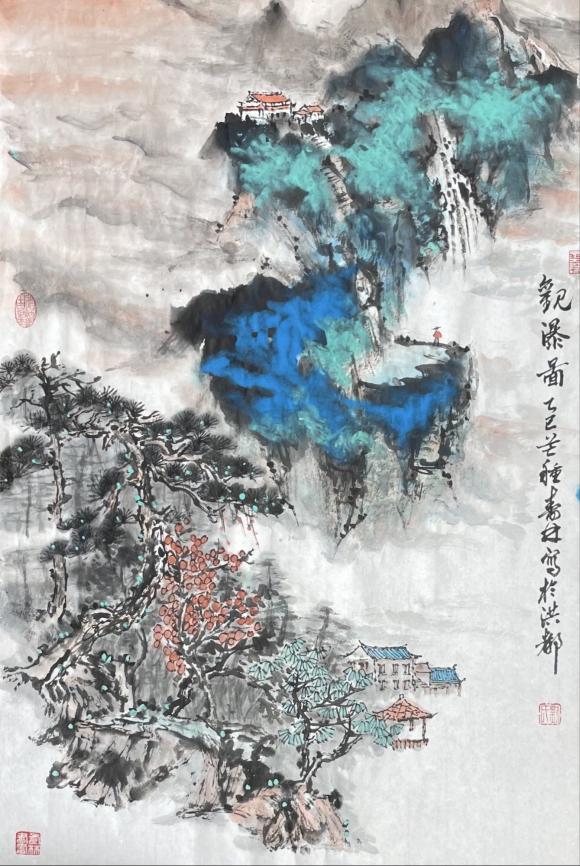 觀瀑圖乙巳芒種春林寫於洪都